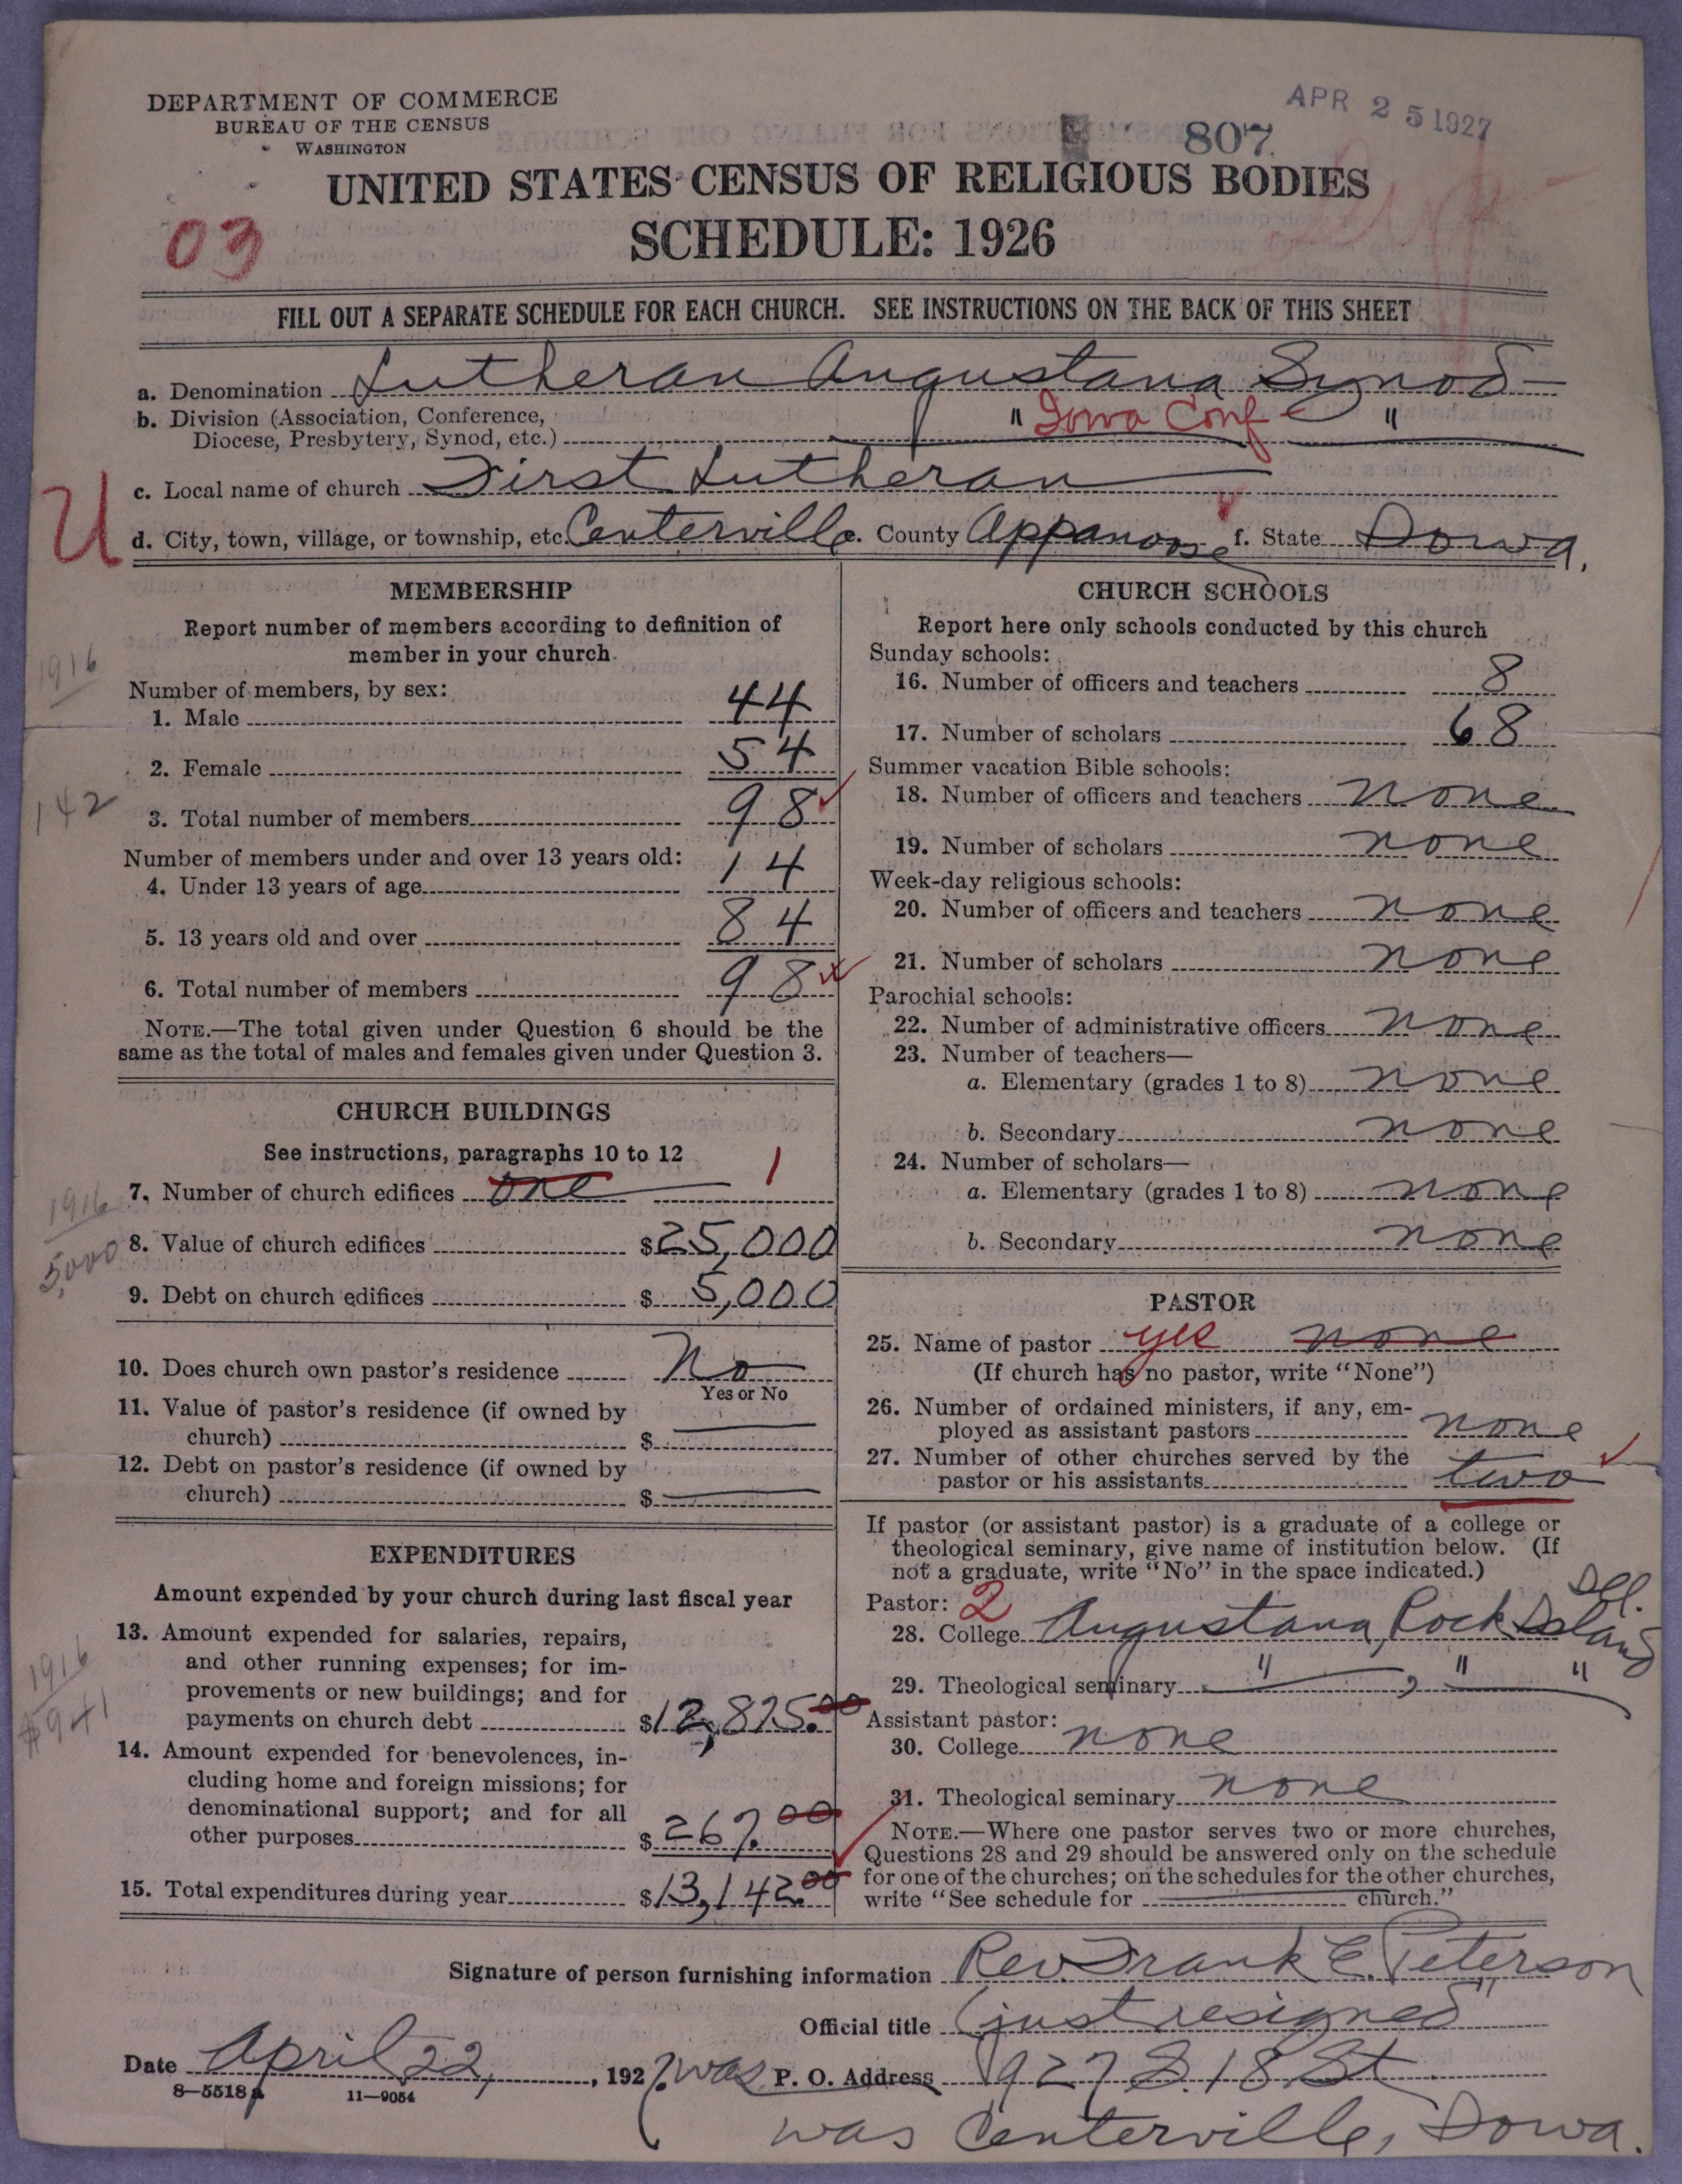 DEPARTMENT OF COMMERCE
BUREAU OF THE CENSUS
WASHINGTON
APR 25 1927
807
UNITED STATES CENSUS OF RELIGIOUS BODIES
SCHEDULE: 1926
03
FILL OUT A SEPARATE SCHEDULE FOR EACH CHURCH. SEE INSTRUCTIONS ON THE BACK OF THIS SHEET
a. Denomination Lutheran Augustana Synod
b. Division (Association, Conference,
Diocese, Presbytery, Synod, etc.) " Iowa Conf "
c. Local name of church First Lutheran
U
d. City, town, village, or township, etc. Centerville e. County Appanoose f. State Iowa.
MEMBERSHIP
Report number of members according to definition of
member in your church.
1916
Number of members, by sex:
1. Male 44
2. Female 54
142
3. Total number of members 98
Number of members under and over 13 years old:
4. Under 13 years of age 14
5. 13 years old and over 84
6. Total number of members 98
NOTE.—The total given under Question 6 should be the
same as the total of males and females given under Question 3.
CHURCH BUILDINGS
See instructions, paragraphs 10 to 12
7. Number of church edifices one 1
1916
5,000
8. Value of church edifices $25,000
9. Debt on church edifices $5,000
10. Does church own pastor's residence No
Yes or No
11. Value of pastor's residence (if owned by
church) $
12. Debt on pastor's residence (if owned by
church) $
EXPENDITURES
Amount expended by your church during last fiscal year
1916
$941
13. Amount expended for salaries, repairs,
and other running expenses; for im-
provements or new buildings; and for
payments on church debt $12,875.00
14. Amount expended for benevolences, in-
cluding home and foreign missions; for
denominational support; and for all
other purposes $267.00
15. Total expenditures during year $13,142.00
CHURCH SCHOOLS
Report here only schools conducted by this church
Sunday schools:
16. Number of officers and teachers 8
17. Number of scholars 68
Summer vacation Bible schools:
18. Number of officers and teachers none
19. Number of scholars none
Week-day religious schools:
20. Number of officers and teachers none
21. Number of scholars none
Parochial schools:
22. Number of administrative officers none
23. Number of teachers—
a. Elementary (grades 1 to 8) none
b. Secondary none
24. Number of scholars—
a. Elementary (grades 1 to 8) none
b. Secondary none
PASTOR
25. Name of pastor yes none
(If church has no pastor, write "None")
26. Number of ordained ministers, if any, em-
ployed as assistant pastors none
27. Number of other churches served by the
pastor or his assistants two
If pastor (or assistant pastor) is a graduate of a college or
theological seminary, give name of institution below. (If
not a graduate, write "No" in the space indicated.)
Pastor: 2
28. College Augustana, Rock Island Ill.
29. Theological seminary " , " "
Assistant pastor:
30. College none
31. Theological seminary none
NOTE.—Where one pastor serves two or more churches,
Questions 28 and 29 should be answered only on the schedule
for one of the churches; on the schedules for the other churches,
write "See schedule for church."
Signature of person furnishing information Rev. Frank E. Peterson
Official title (just resigned)
Date April 22, 1927. was P. O. Address 927 S. 18 St
8—5518a 11—9054
was Centerville, Iowa.